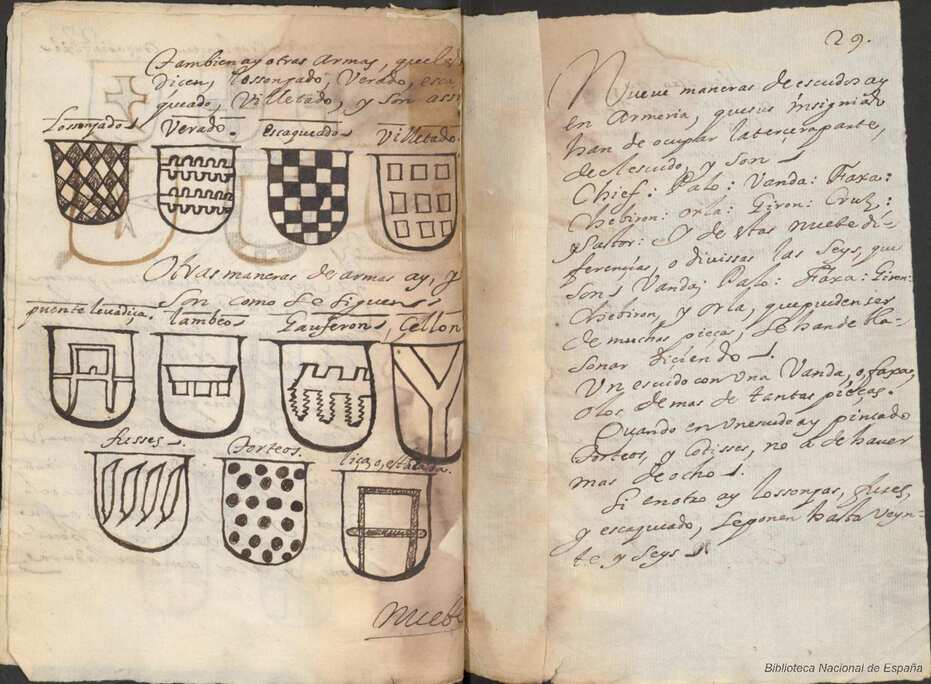 Tambien ay otras armas, que les
Dicen, Lossonjado, Verado, esca
queado, Villetado, y son assi
Lossonjado
Verado.
escaqueado
Villetado.
Otras maneras de armas ay, y
son como se siguen
puente levadiça.
Lambeo
Gauferon
Cellon
fusses
Torteos.
liça, o, estacada.
Nuebe
29.
Nueve maneras de escudos ay
en Armeria, que sus insignias
han de ocupar la tercera parte,
del escudo, y son
Chief: Palo: Vanda: Faxa:
Chebiron: orla: Giron: Cruz:
y Sastor: Y de estas nuebe di-
ferencias, o divissas las seys, que
son, Vanda; Palo: Faxa: Giron:
Chebiron, y orla, que pueden ser
de muchas pieças, se han de bla-
sonar diciendo
Un escudo con una Vanda, o, faxa,
o los demas de tantas pieças.
Quando en un escudo ay pintado
Torteos, y Cotisses, no a de haver
mas de ocho
Si en otro ay lossonjas, fuses,
y escaqueado, se ponen hasta veyn-
te y seys
Biblioteca Nacional de España